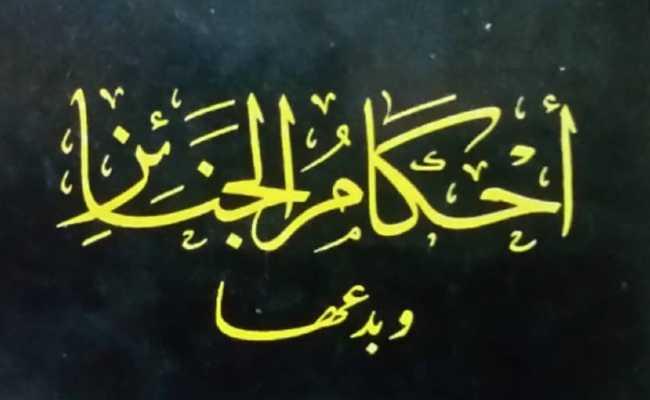 أَحْكَامُ الجَنَائِزِ
وبدعها